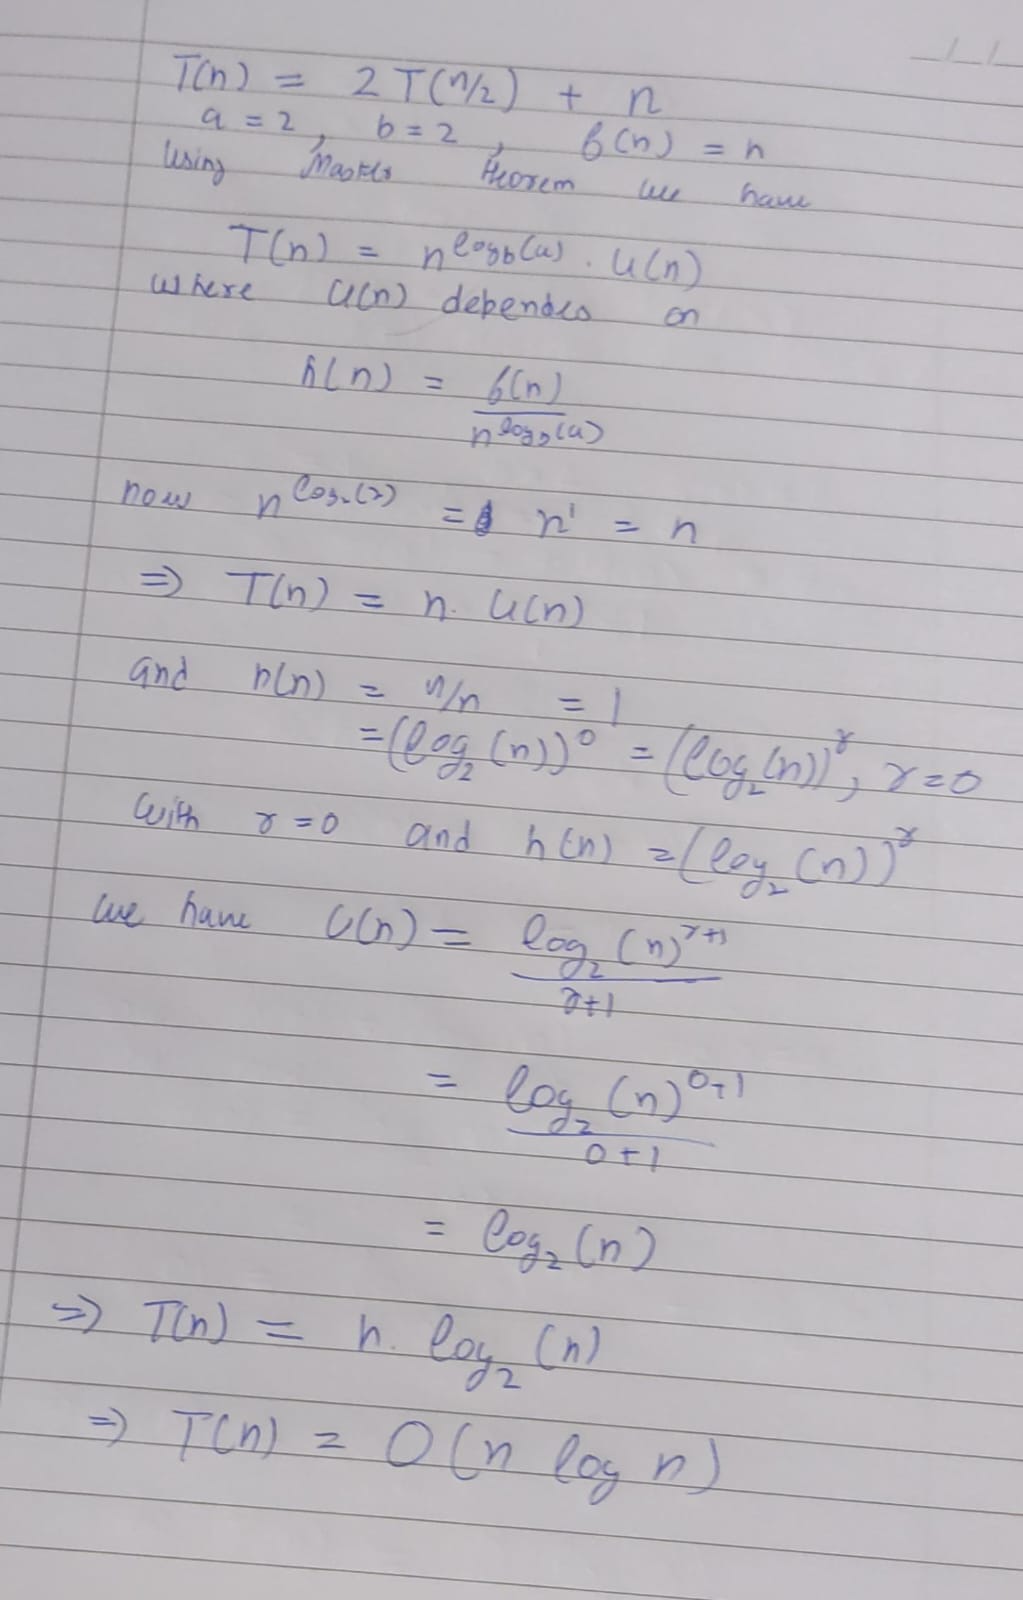 T(n) = 2T(n/2) + n
a = 2, b = 2, f(n) = n
Using Masters theorem we have
T(n) = n^log_b(a) . U(n)
where U(n) dependes on
h(n) = f(n) / n^log_b(a)
now n^log_2(2) = n^1 = n
⇒ T(n) = n. U(n)
and h(n) = n/n = 1
= (log_2(n))^0 = (log_2(n))^r, r=0
with r=0 and h(n) = (log_2(n))^r
we have U(n) = log_2(n)^r+1 / r+1
= log_2(n)^0+1 / 0+1
= log_2(n)
⇒ T(n) = n. log_2(n)
⇒ T(n) = O(n log n)